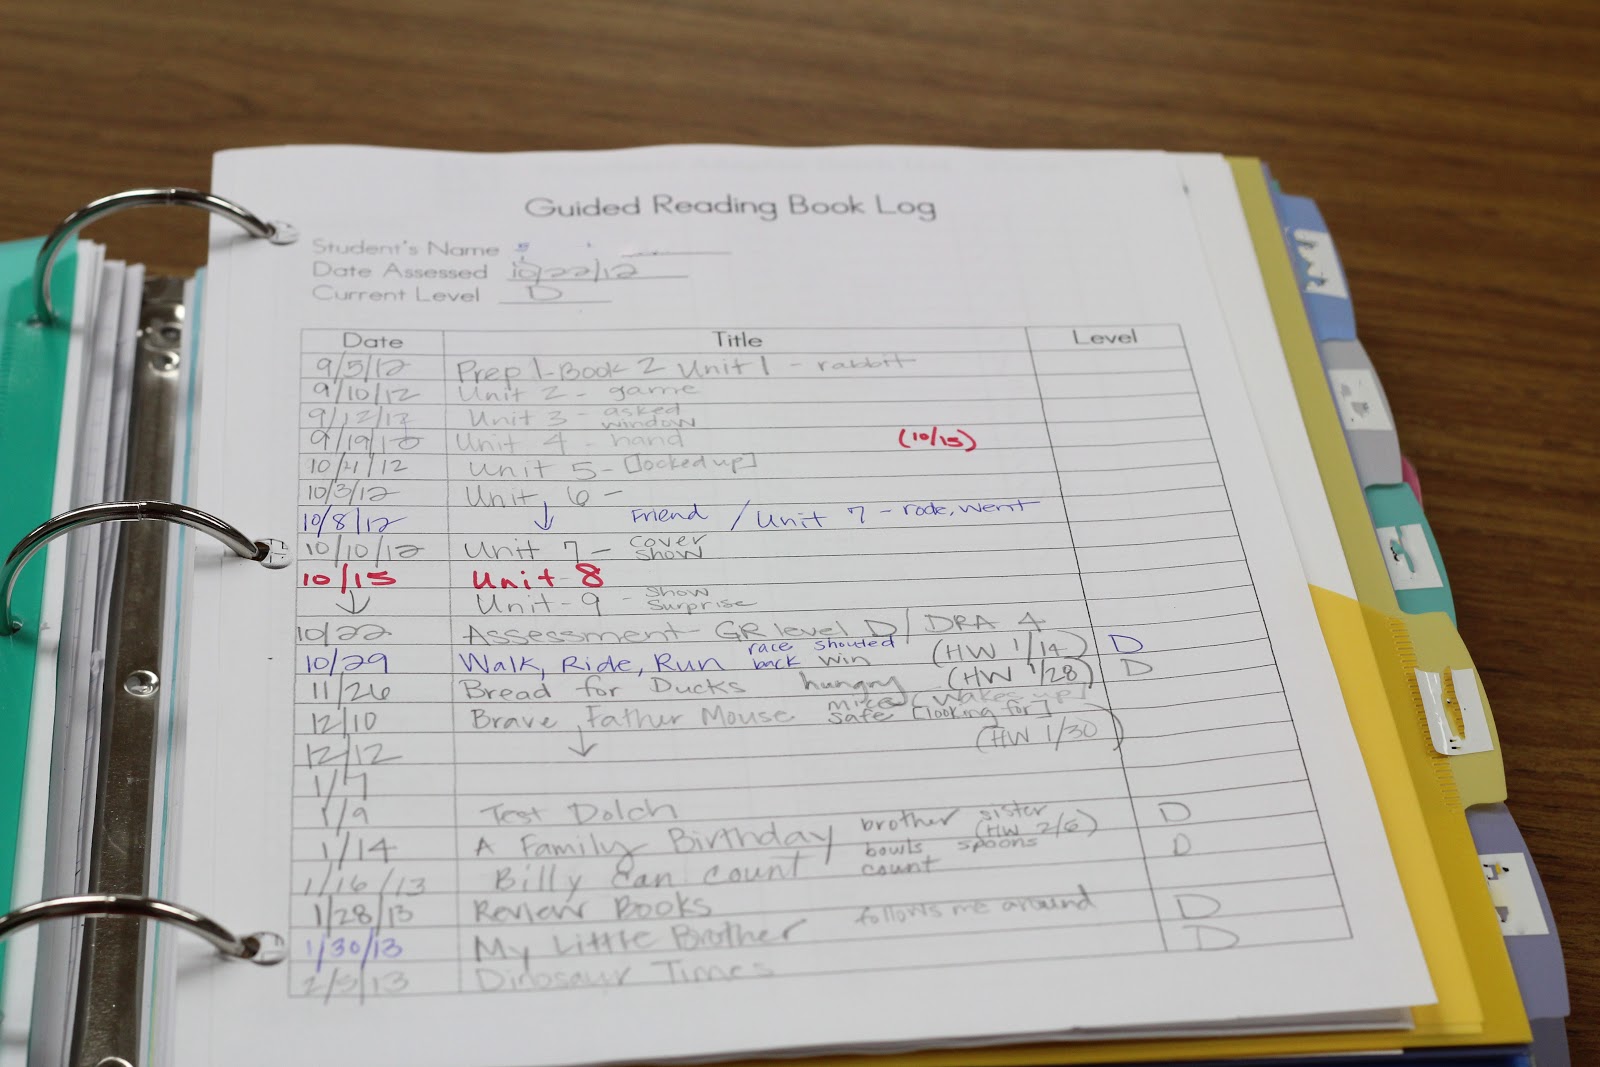 Guided Reading Book Log
Student's Name
Date Assessed 10/22/12
Current Level D
Date Title Level
9/5/12 Prep 1-Book 2 Unit 1 - rabbit
9/10/12 Unit 2 - game
9/12/12 Unit 3 - asked
window
9/19/12 Unit 4 - hand (10/15)
10/1/12 Unit 5 - [locked up]
10/3/12 Unit 6 -
10/8/12 ↓ Friend / Unit 7 - rode, went
10/10/12 Unit 7 - cover
show
10/15 Unit 8
↓ Unit - 9 - show
surprise
10/22 Assessment - GR level D / DRA 4
10/29 Walk, Ride, Run race shouted back win (HW 1/14) D
11/26 Bread for Ducks hungry (HW 1/28) D
12/10 Brave Father Mouse mice [wakes up]
safe [looking for]
12/12 ↓ (HW 1/30)
1/7
1/9 Test Dolch D
1/14 A Family Birthday brother sister (HW 2/6) D
bowls spoons
1/16/13 Billy Can Count count
1/28/13 Review Books D
1/30/13 My Little Brother follows me around D
2/5/13 Dinosaur Times